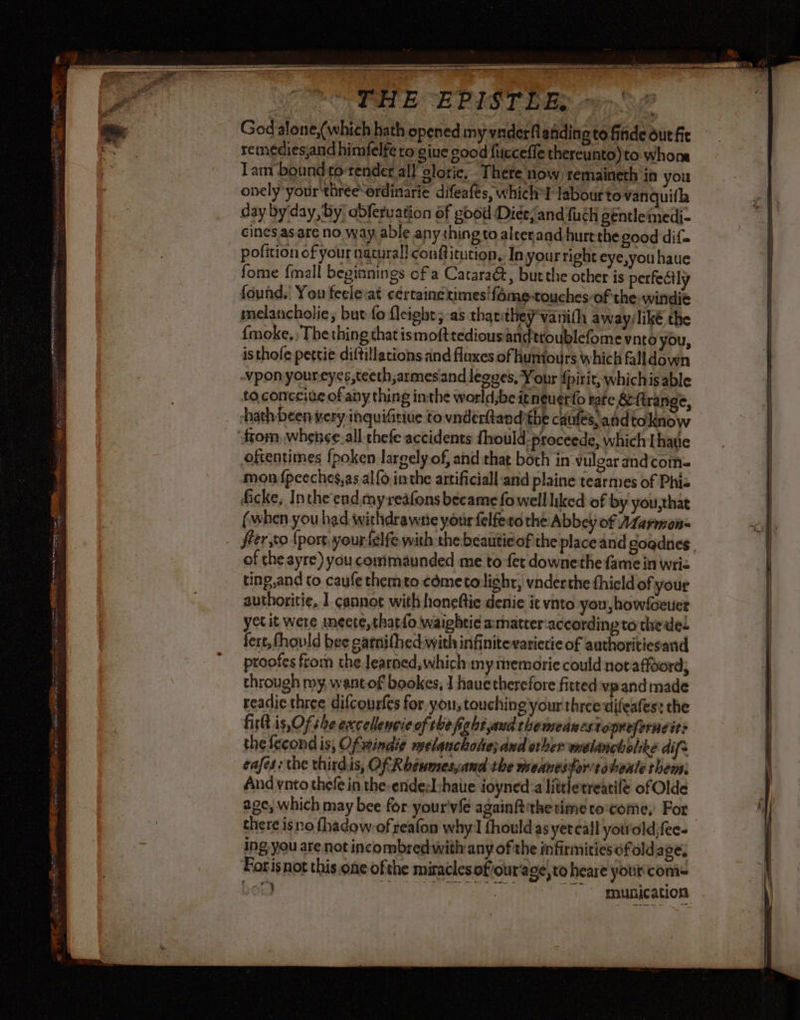 THE EPISTLE.
God alone, (which hath opened my vnderſtanding to finde out fit
remedies, and himſelfe to giue good ſucceſſe thereunto) to whom
I am bound to render all glorie. There now remaineth in you
onely your three ordinarie diſeaſes, which I labour to vanquiſh
day by day, by obſeruation of good Diet, and ſuch gentle medi-
cines as are no way able any thing to alter and hurt the good diſ-
poſition of your naturall conſtitution. In your right eye, you haue
ſome ſmall beginnings of a Cataract, but the other is perfectly
ſound. You feele at certaine times ſome touches of the windie
melancholie, but ſo ſleight; as that they vaniſh away, like the
ſmoke. The thing that is moſt tedious and troubleſome vnto you,
is thoſe pettie diſtillations and fluxes of humours which fall down
vpon your eyes, teeth, armes and legges. Your ſpirit, which is able
to conceiue of any thing in the world, be it neuer ſo rare & ſtrange,
hath been very inquiſitiue to vnderſtand the cauſes, and to know
from whence all theſe accidents ſhould proceede, which I haue
oftentimes ſpoken largely of, and that both in vulgar and com-
mon ſpeeches, as alſo in the artificiall and plaine tearmes of Phi-
ſicke. In the end my reaſons became ſo well liked of by you, that
(when you had withdrawne your ſelfe to the Abbey of Marmon-
ſtier, to ſport your ſelfe with the beautie of the place and goodnes
of the ayre) you commaunded me to ſet downe the ſame in wri-
ting, and to cauſe them to come to light, vnder the ſhield of your
authoritie. I cannot with honeſtie denie it vnto you, howſoeuer
yet it were meete, that ſo waightie a matter according to the de-
ſert, ſhould bee garniſhed with infinite varietie of authorities and
proofes from the learned, which my memorie could not affoord,
through my want of bookes. I haue therefore fitted vp and made
readie three diſcourſes for you, touching your three diſeaſes: the
firſt is, Of the excellencie of the ſight, and the meanes to preſerue it:
the ſecond is, Of windie melancholie, and other melancholike diſ-
eaſes: the third is, Of Rheumes, and the meanes for to heale them.
And vnto theſe in the ende, I haue ioyned a little treatiſe of Olde
age, which may bee for your vſe againſt the time to come. For
there is no ſhadow of reaſon why I ſhould as yet call you old, ſee-
ing you are not incombred with any of the infirmities of old age.
For is not this one of the miracles of our age, to heare your com-
munication